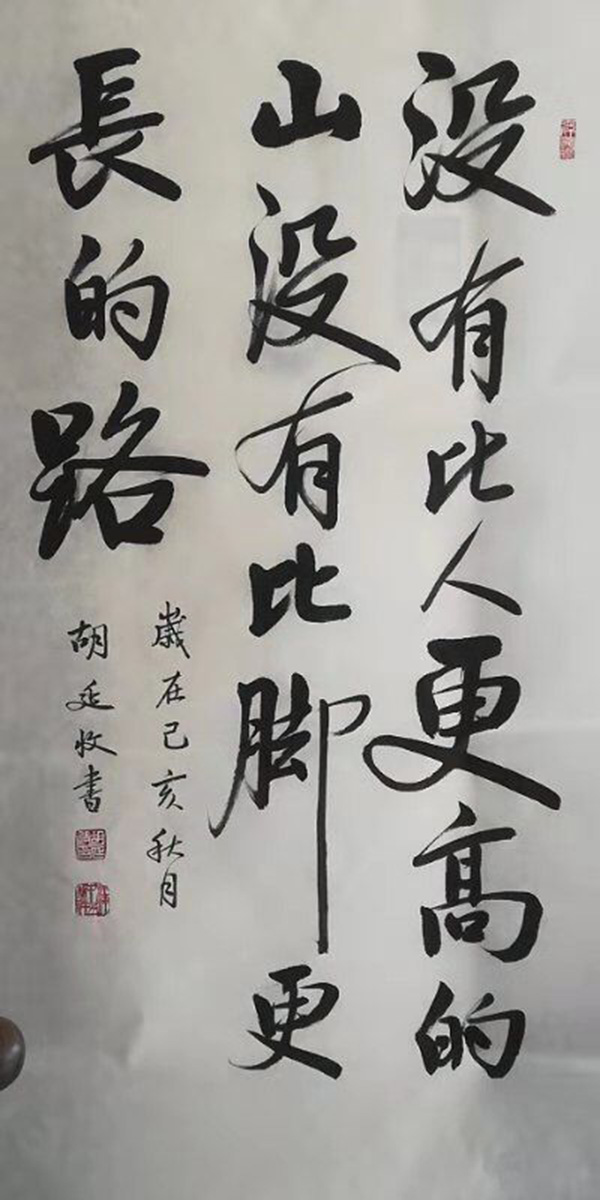 没有比人更高的
山没有比脚更
長的路
歲在己亥秋月
胡延收書